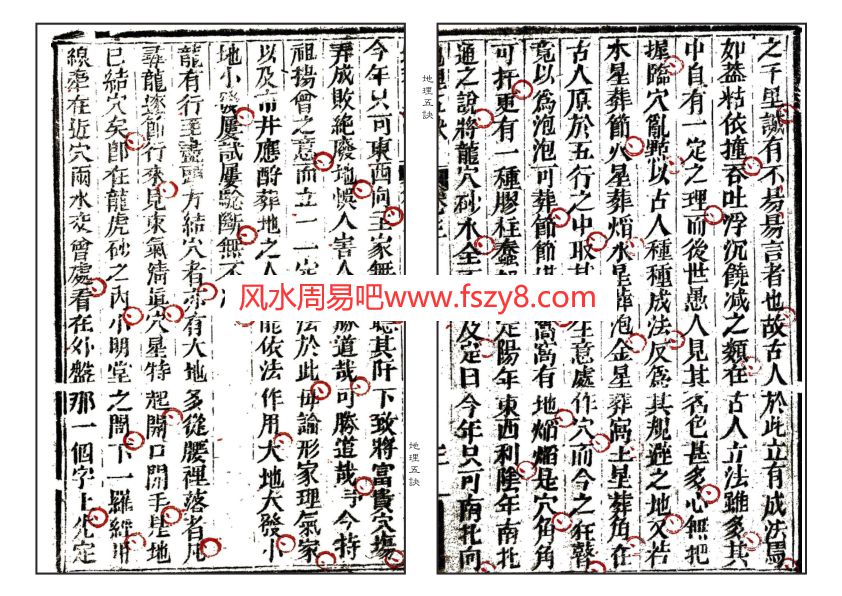 之千里誠有不易易言者也故古人於此立有成法焉
如蓋粘依撞吞吐浮沉饒減之類在古人立法雖多其
中自有一定之理而後世愚人見其名色甚多心無把
握臨穴亂點以古人種種成法反爲其規避之地又若
木星葬節火星葬焰水星葬泡金星葬窩土星葬角在
古人原於五行之中取其生意處作穴而今之狂瞽
竟以爲泡泡可葬節節窩窩有地焰焰是穴角角
可扦更有一種膠柱定陽年東西利陰年南北
通之說將龍穴砂水全及定曰今年只可南北向
地理五訣
今年只可東西向主家無聽其阡下致將富貴穴塲
弄成敗絶廢地悞人害人勝道哉可勝道哉予今特
祖揚曾之意而立一一定法於此毋論形家理氣家
以及市井應酧葬地之人能依法作用大地大發小
地小發屢試屢驗斷無不
龍有行至盡頭方結穴者亦有大地多從腰裡落者凡
尋龍逐節行來見束氣清眞穴星特起開口開手是地
已結穴矣卽在龍虎砂之內小明堂之間下一羅經用
線牽在近穴兩水交會處看在外盤那一個字上先定
地理五訣
风水周易吧www.fszy8.com